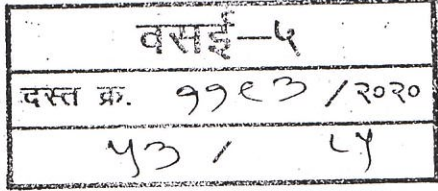 वसई—५
दस्त क्र. ११९३ / २०२०
५३ / ८५